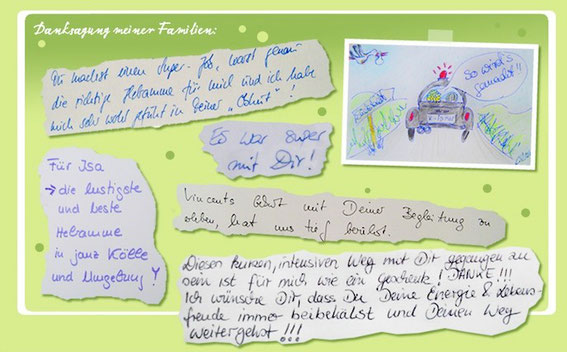 Danksagung meiner Familien:
Du machst einen Super-Job, warst genau
die richtige Hebamme für mich und ich habe
mich sehr wohl gefühlt in Deiner „Obhut"!
So wird's
gemacht!!
Es war super
mit Dir!
Für Isa
→ die lustigste
und beste
Hebamme
in janz Kölle
und Umgebung!
Vincents Geburt mit Deiner Begleitung zu
erleben, hat uns tief berührt.
Diesen kurzen, intensiven Weg mit Dir gegangen zu
sein ist für mich wie ein Geschenk! DANKE!!!
Ich wünsche Dir, dass Du Deine Energie & Lebens-
freude immer beibehälst und Deinen Weg
weitergehst!!!